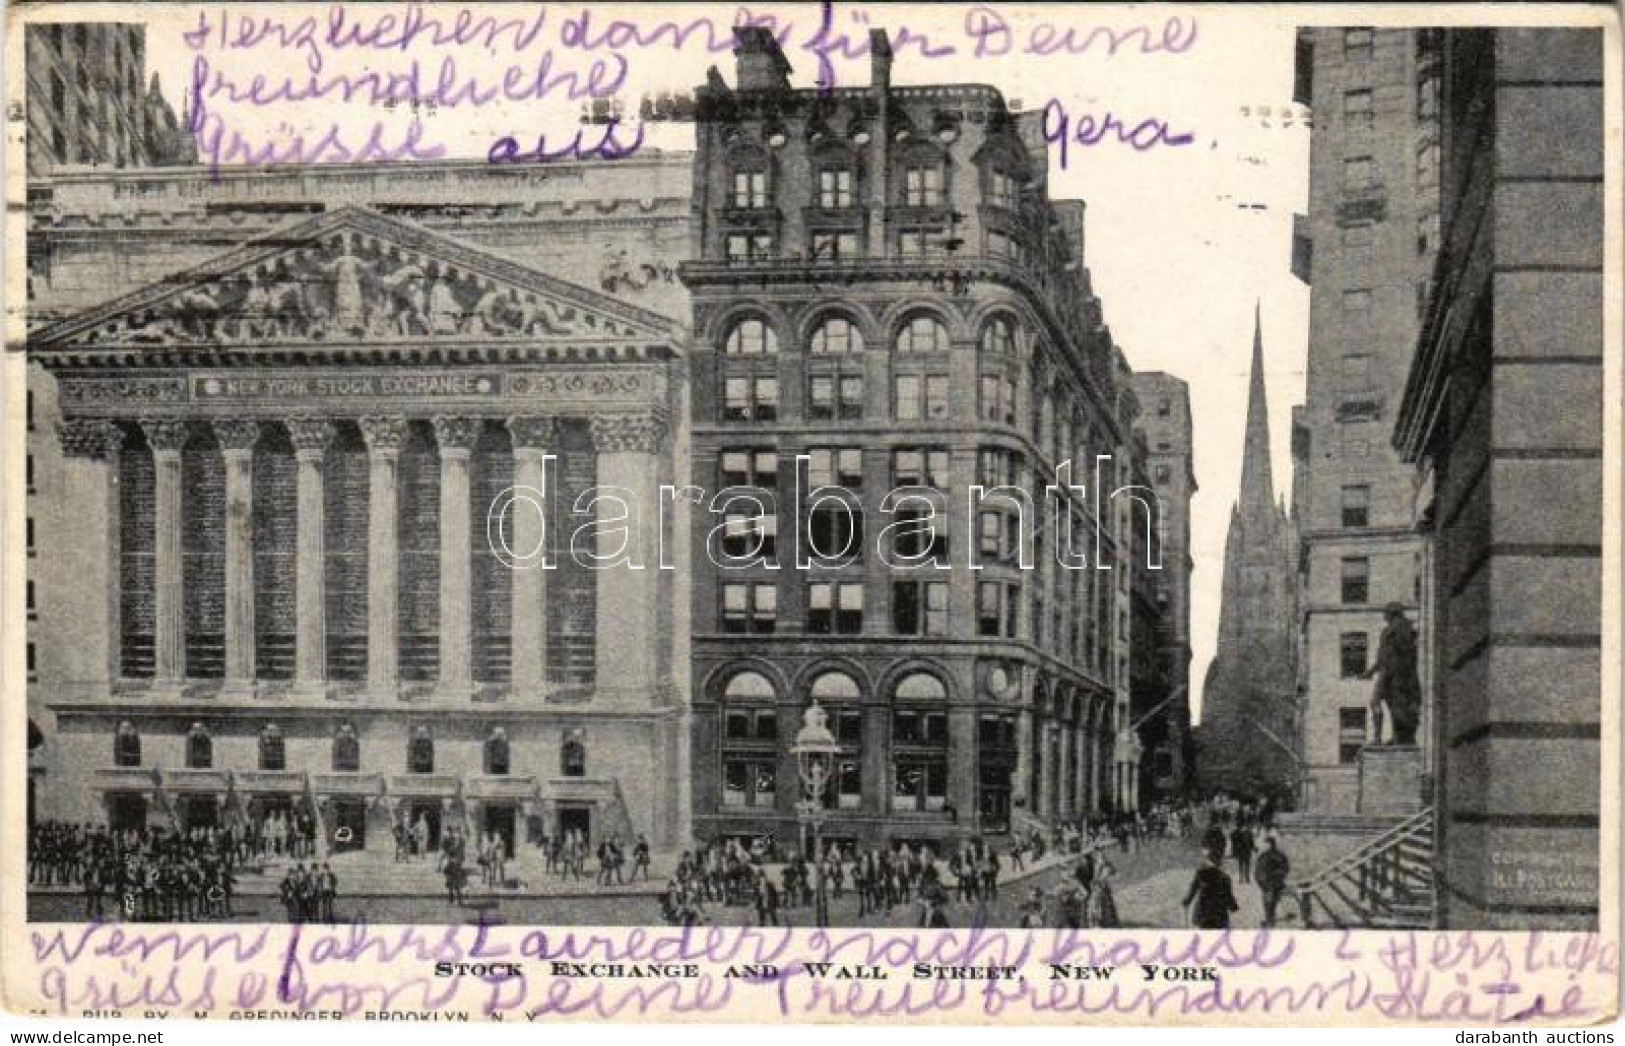 Herzlichen dank für Deine
freundliche
Grüsse aus Gera.
NEW YORK STOCK EXCHANGE
darabanth
COPYRIGHT
Wenn fährst wieder nach hause? Herzliche
STOCK EXCHANGE AND WALL STREET, NEW YORK
Grüsse von Deine Treue freundinn Kätie
PUB. BY M. GREDINGER BROOKLYN N. Y.
darabanth auctions